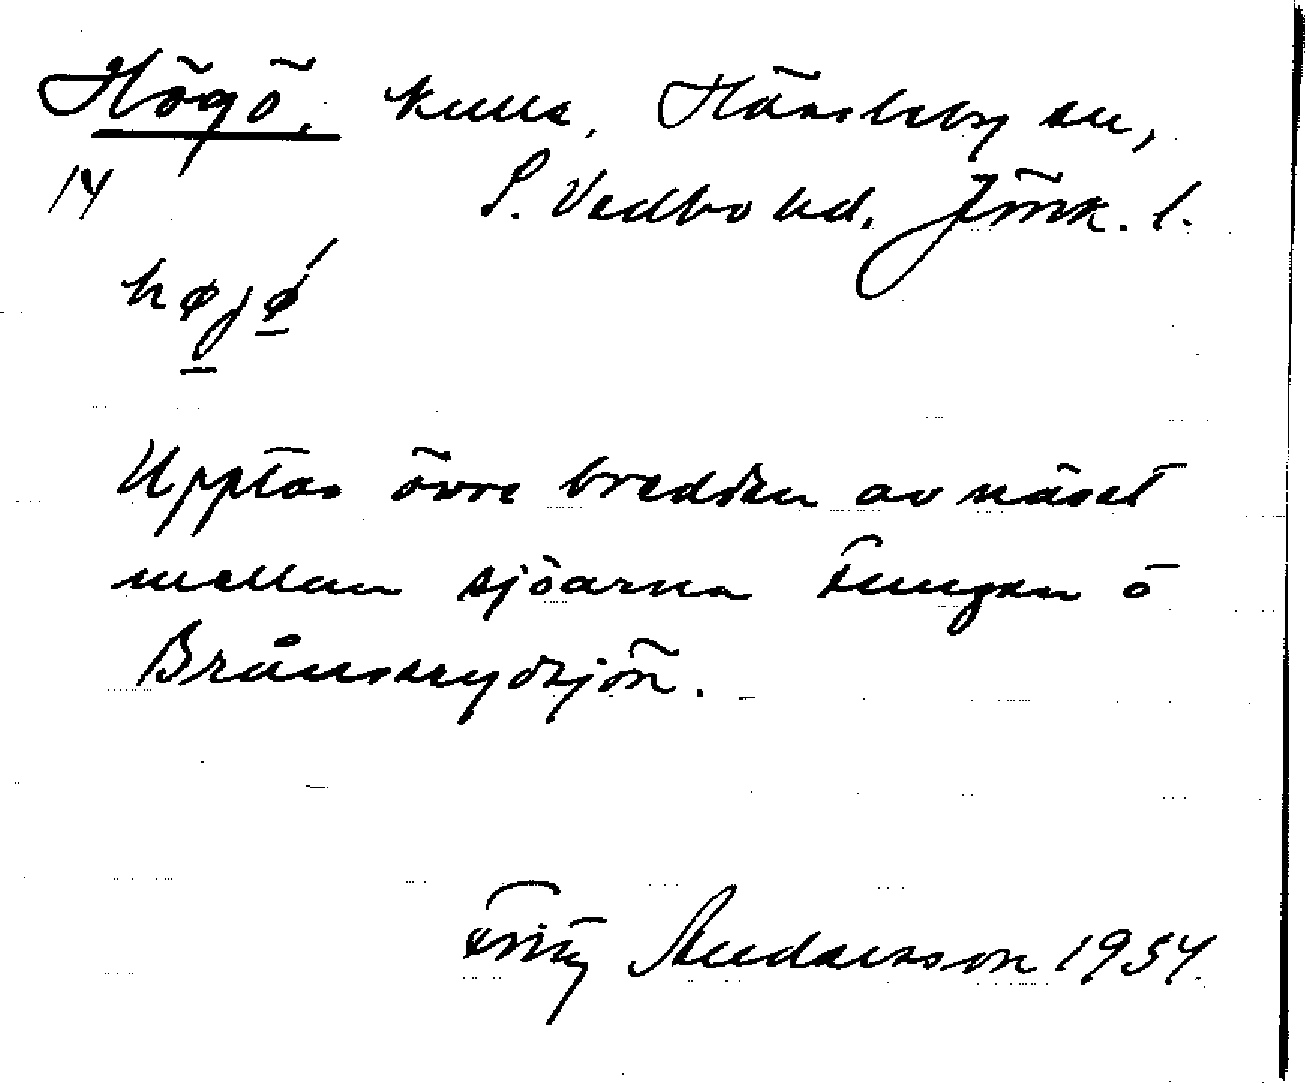 Högö, kulle, Hässleby sn,
14 S. Vedbo hd. Jönk. l.
højø
Upptar övre bredden av näset
mellan sjöarna Fungen o
Brånserydssjön.
Fritz Andersson 1954